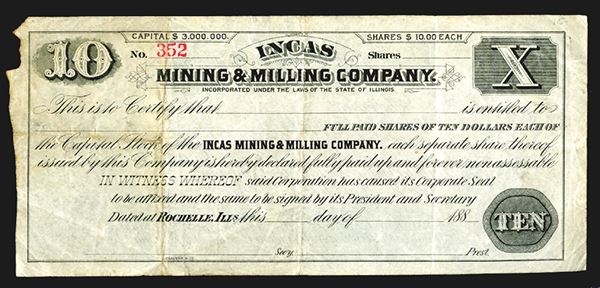 CAPITAL $ 3.000.000. SHARES $ 10.00 EACH
10 No. 352 INCAS Shares X
MINING & MILLING COMPANY.
INCORPORATED UNDER THE LAWS OF THE STATE OF ILLINOIS.
This is to Certify that is entitled to
FULL PAID SHARES OF TEN DOLLARS EACH OF
the Capital Stock of the INCAS MINING & MILLING COMPANY. each separate share thereof
issued by this Company is hereby declared fully paid up and forever non assessable
IN WITNESS WHEREOF said Corporation has caused its Corporate Seal
to be affixed and the same to be signed by its President and Secretary
Dated at ROCHELLE, ILLS this day of 188 TEN
Secy. Prest.